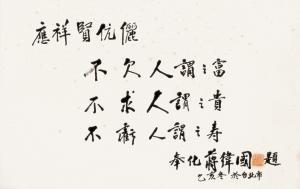 應祥賢伉儷
不欠人謂之富
不求人謂之貴
不虧人謂之寿
奉化蔣緯國題
乙亥冬於台北市